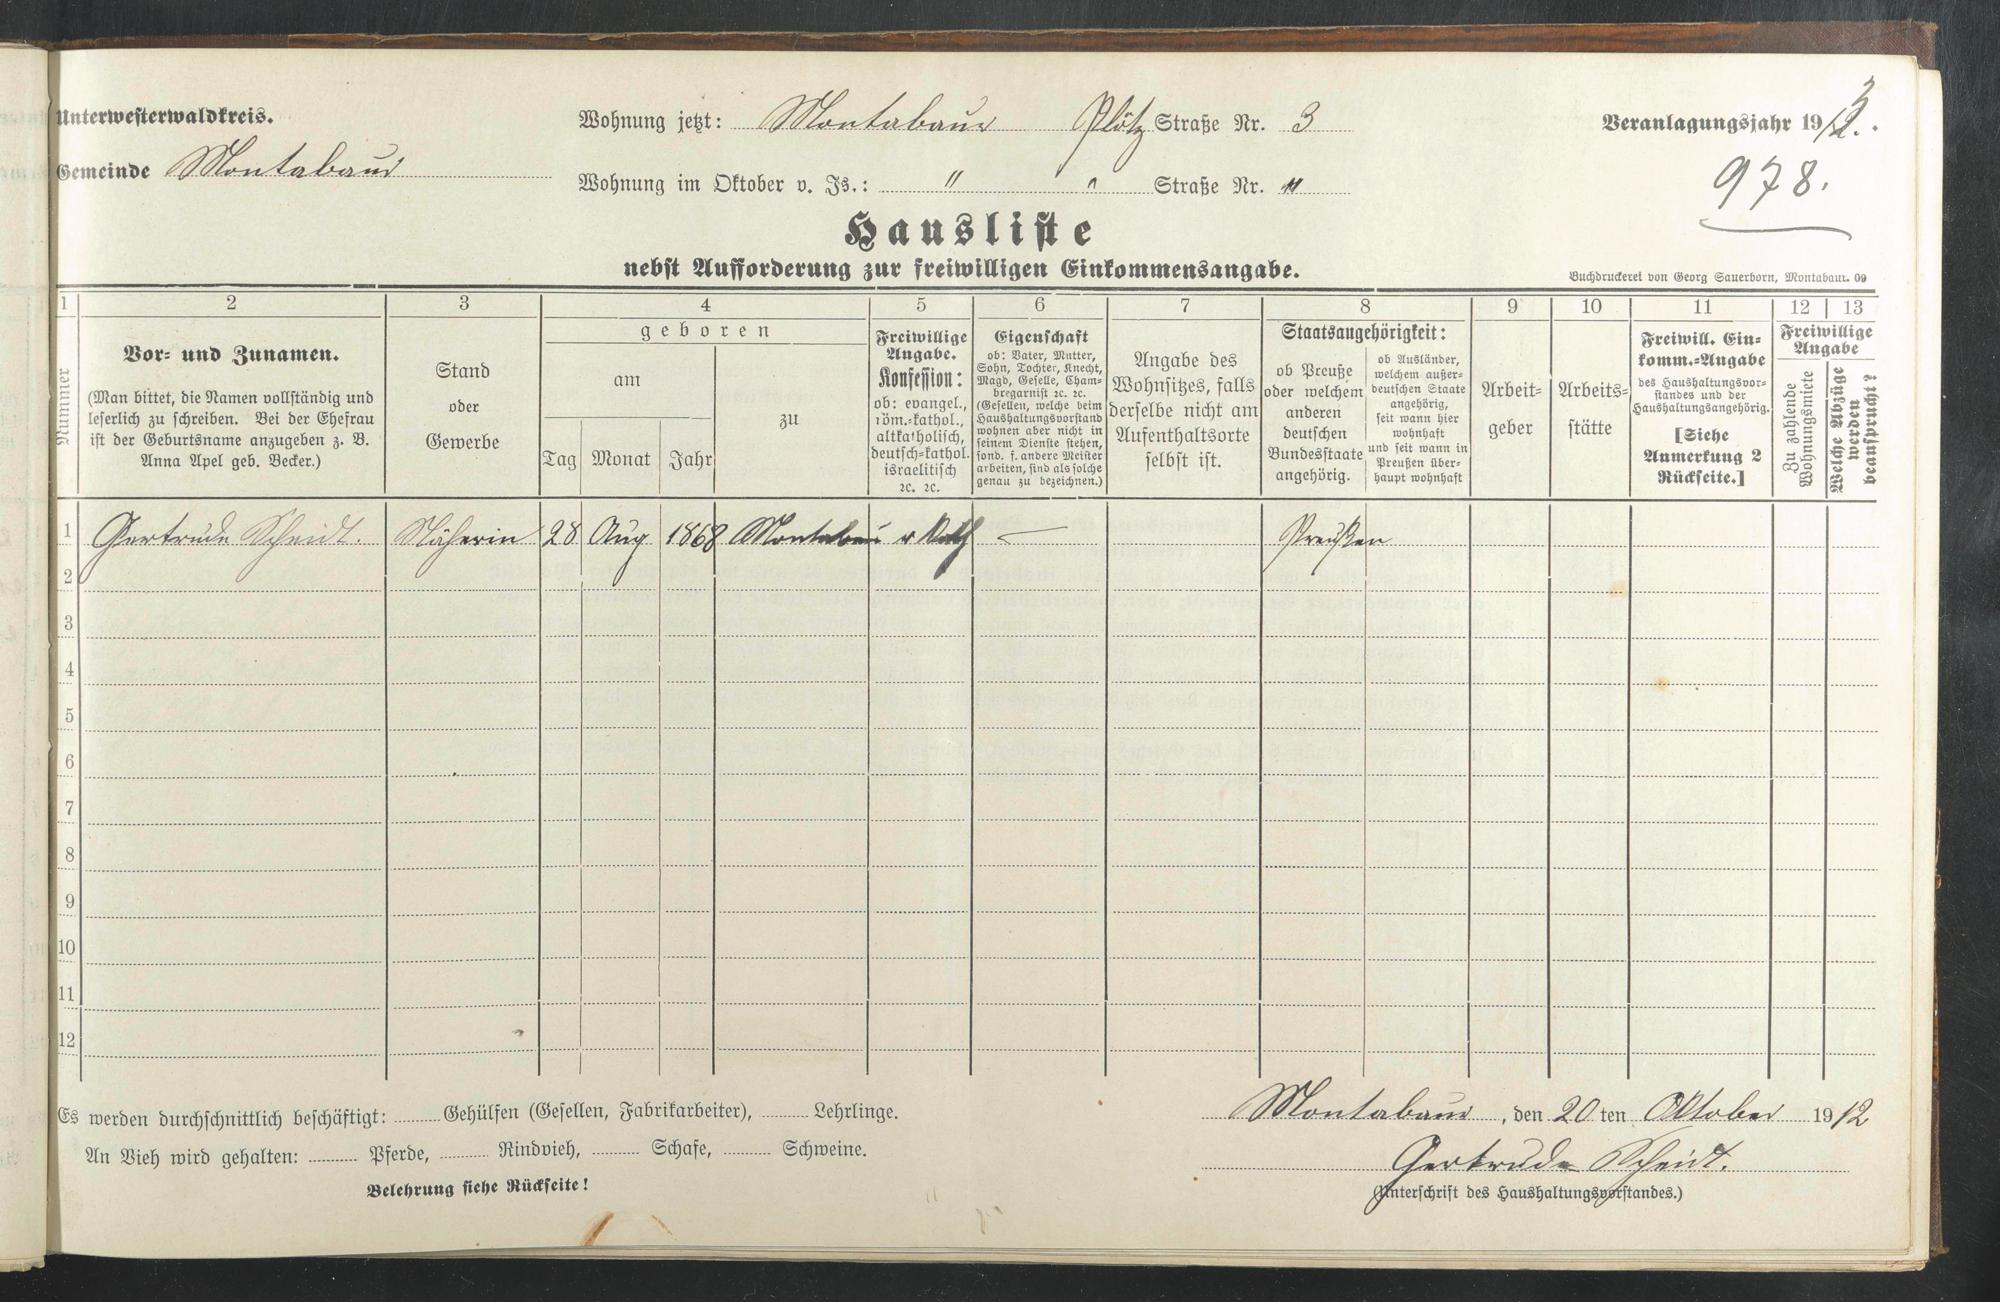 Unterwesterwaldkreis.
Gemeinde Montabaur
Wohnung jetzt: Montabaur Plötz Straße Nr. 3
Wohnung im Oktober v. Js.: " " Straße Nr. "
Veranlagungsjahr 19 13.
978.
Hausliste
nebst Aufforderung zur freiwilligen Einkommensangabe.
Buchdruckerei von Georg Sauerborn, Montabaur. 09
1 2 3 4 5 6 7 8 9 10 11 12 13
Nummer
Vor- und Zunamen.
(Man bittet, die Namen vollständig und
leserlich zu schreiben. Bei der Ehefrau
ist der Geburtsname anzugeben z. B.
Anna Apel geb. Becker.)
Stand
oder
Gewerbe
geboren
am
Tag Monat Jahr
zu
Freiwillige
Angabe.
Konfession:
ob: evangel.,
röm.-kathol.,
altkatholisch,
deutsch-kathol.
israelitisch
ꝛc. ꝛc.
Eigenschaft
ob: Vater, Mutter,
Sohn, Tochter, Knecht,
Magd, Geselle, Cham-
bregarnist ꝛc. ꝛc.
(Gesellen, welche beim
Haushaltungsvorstand
wohnen aber nicht in
seinem Dienste stehen,
sond. f. andere Meister
arbeiten, sind als solche
genau zu bezeichnen.)
Angabe des
Wohnsitzes, falls
derselbe nicht am
Aufenthaltsorte
selbst ist.
Staatsangehörigkeit:
ob Preuße
oder welchem
anderen
deutschen
Bundesstaate
angehörig.
ob Ausländer,
welchem außer-
deutschen Staate
angehörig,
seit wann hier
wohnhaft
und seit wann in
Preußen über-
haupt wohnhaft
Arbeit-
geber
Arbeits-
stätte
Freiwill. Ein-
komm.-Angabe
des Haushaltungsvor-
standes und der
Haushaltungsangehörig.
[Siehe
Anmerkung 2
Rückseite.]
Freiwillige
Angabe
Zu zahlende
Wohnungsmiete
Welche Abzüge
werden
beansprucht?
1 Gertrude Scheidt. Näherin 28 Aug 1868 Montabaur r Kath — Preußen
2
3
4
5
6
7
8
9
10
11
12
Es werden durchschnittlich beschäftigt: Gehülfen (Gesellen, Fabrikarbeiter), Lehrlinge.
An Vieh wird gehalten: Pferde, Rindvieh, Schafe, Schweine.
Belehrung siehe Rückseite!
Montabaur, den 20 ten Oktober 1912
Gertrude Scheidt.
(Unterschrift des Haushaltungsvorstandes.)